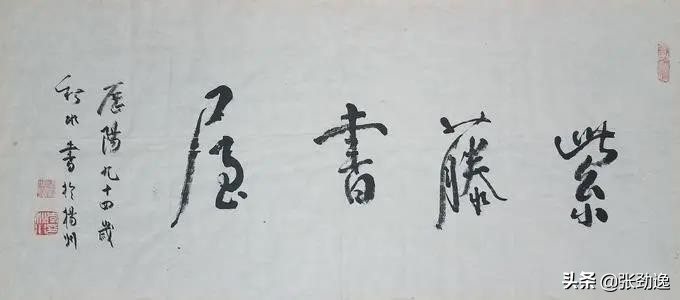 紫藤書屋
歷陽九十四歲
秋水書於揚州
头条 @张劲逸